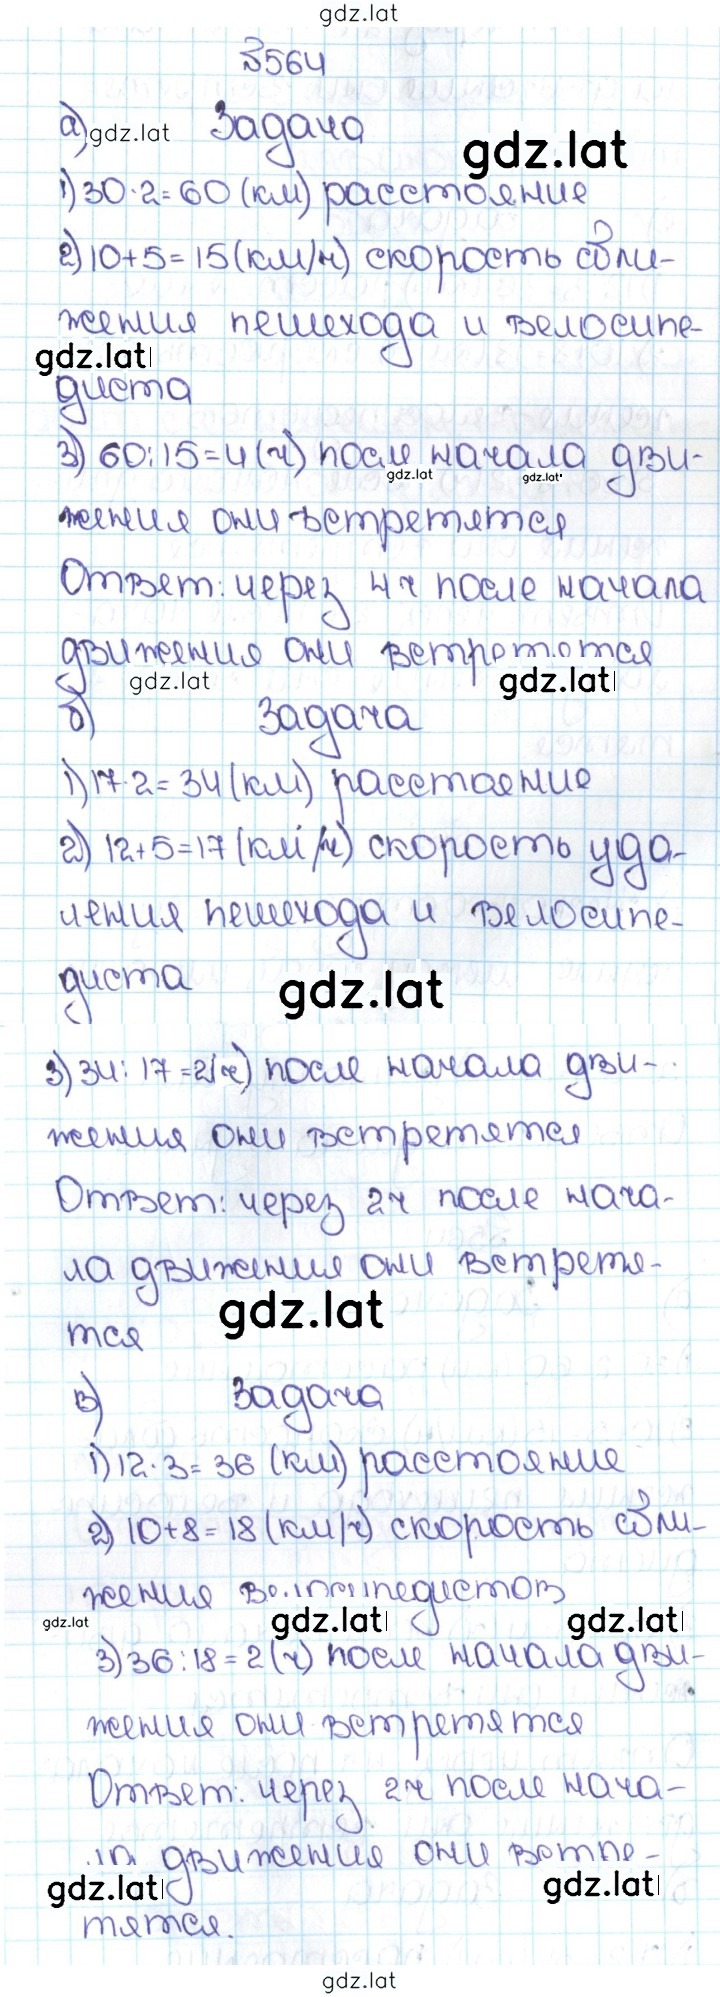 gdz.lat
№564
а) gdz.lat Задача gdz.lat
1) 30·2=60 (км) расстояние
2) 10+5=15 (км/ч) скорость сбли-
жения пешехода и велосипе-
gdz.lat
диста
3) 60:15=4 (ч) после начала дви-
gdz.lat gdz.lat
жения они встретятся
Ответ: через 4ч после начала
движения они встретятся
gdz.lat gdz.lat
б) Задача
1) 17·2=34 (км) расстаение
2) 12+5=17 (км/ч) скорость уда-
ления пешехода и велосипе-
диста gdz.lat
3) 34:17=2(ч) после начала дви-
жения они встретятся
Ответ: через 2ч после нача-
ла движения они встретя-
gdz.lat
тся
в) Задача
1) 12·3=36 (км) расстояние
2) 10+8=18 (км/ч) скорость сбли-
жения велосипедистов
gdz.lat gdz.lat gdz.lat
3) 36:18=2 (ч) после начала дви-
жения они встретятся
Ответ: через 2ч после нача-
ла движения они встре-
gdz.lat gdz.lat
тятся.
gdz.lat